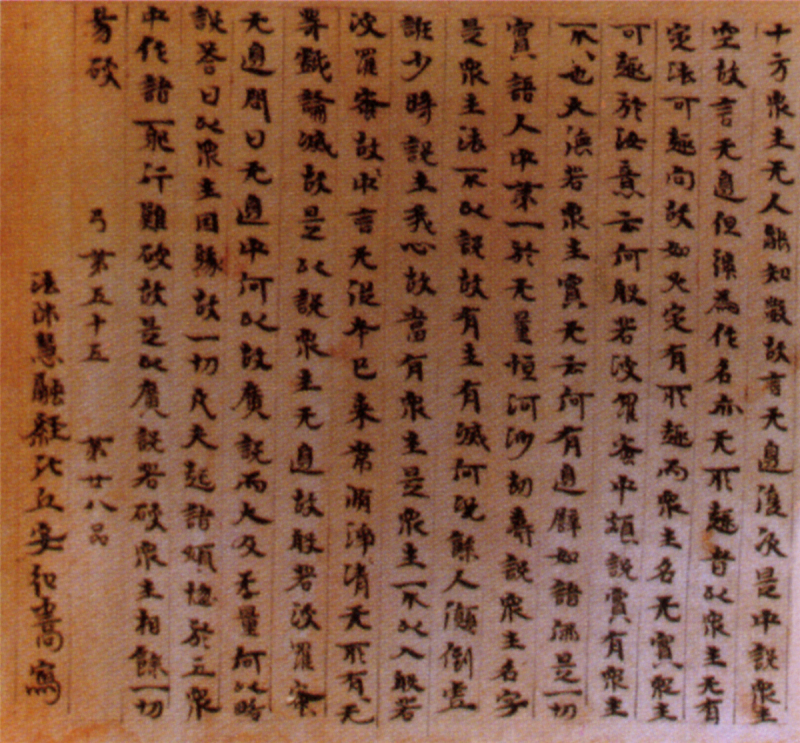 十方衆生无人能知數故言无邊復次是中説衆生
空故言无邊但強為作名亦无所趣者以衆生无有
定法可趣向故如火定有所趣而衆生名无實衆生
可趣於汝意云何般若波羅蜜中頗説實有衆生
不不也大德若衆生實无云何有邊譬如諸佛是一切
實語人中第一於无量恒河沙劫壽説衆生名字
是衆生法不以説故有生有滅何況餘人顛倒虛
誑少時説生我心故當有衆生是衆生不以入般若
波羅蜜故中言无從本已來常淨清无所有无
等戲論滅故是以説衆生无邊故般若波羅蜜
无邊問曰无邊中何以故廣説而大及无量何以略
説荅曰以衆生因緣故一切凡夫起諸煩惱於五衆
中作諸邪行難破故是以廣説若破衆生相餘一切
易破
弓第五十五 第廿八品
法師慧融經比丘安弘嵩寫